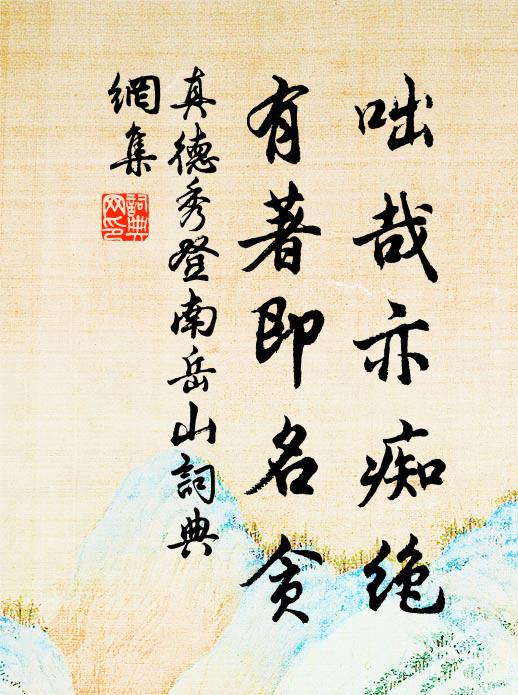 咄哉亦痴绝
有著即名贪
真德秀登南岳山詞典
網集
詞典
网印